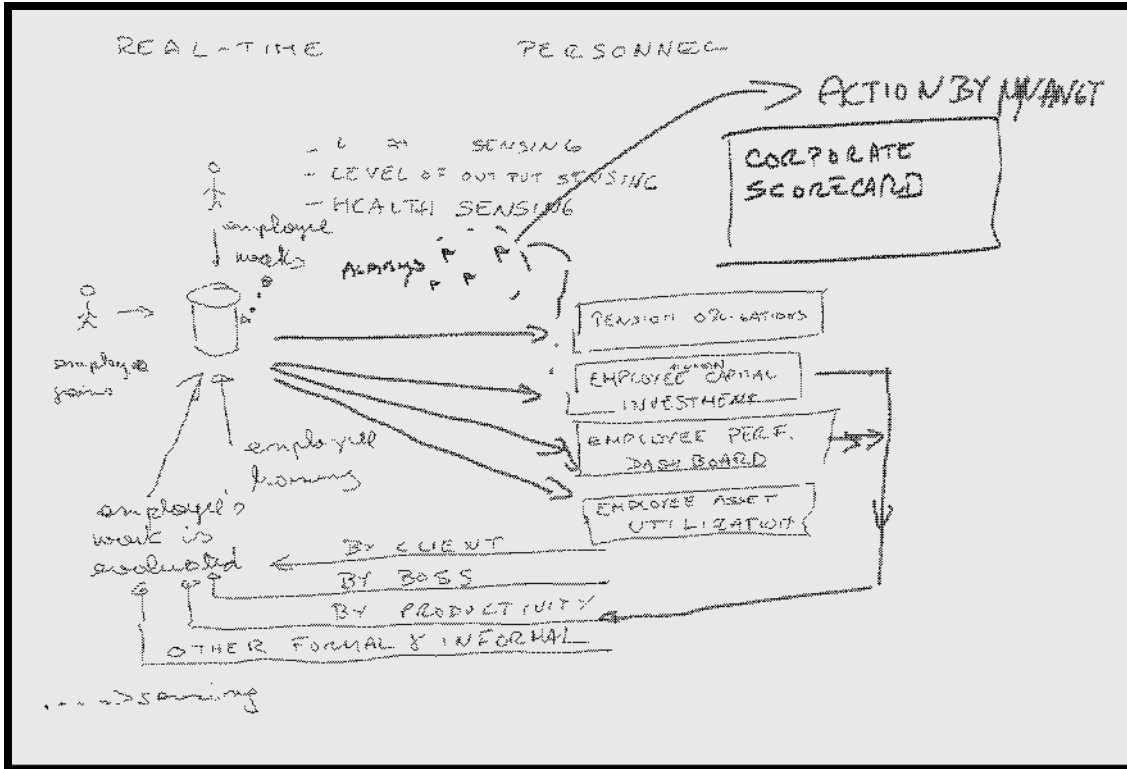 REAL-TIME PERSONNEL
ACTION BY MNANGT
CORPORATE
SCORECARD
- SENSING
- LEVEL OF OUTPUT SENSING
- HEALTH SENSING
employee
works
ALARMS
employee
joins
PENSION OBLIGATIONS
HUMAN
EMPLOYEE CAPITAL
INVESTMENT
EMPLOYEE PERF.
DASHBOARD
EMPLOYEE ASSET
UTILIZATION
employee
training
employee's
work is
evaluated
BY CLIENT
BY BOSS
BY PRODUCTIVITY
OTHER FORMAL & INFORMAL
....> sensing